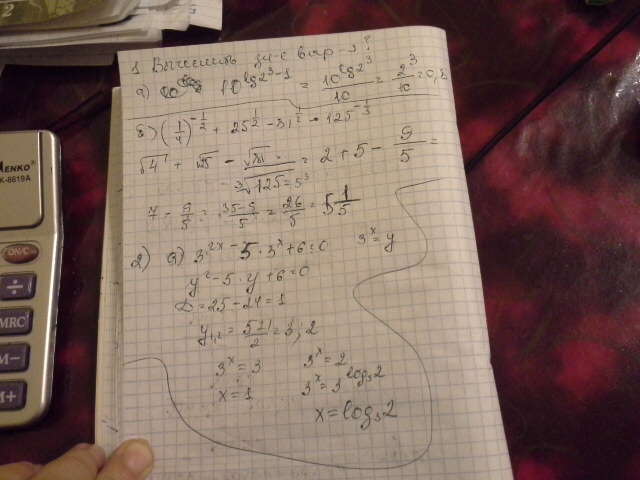 1 Вычислить зн-е выр-я?
а) 10^(lg2^3-1) = 10^(lg2^3)/10 = 2^3/10 = 0,8
б) (1/4)^(-1/2) + 25^(1/2) - 81^(1/2) · 125^(-1/3)
√4 + √25 - √81/∛125=5^3 = 2 + 5 - 9/5 =
7 - 9/5 = 35-9/5 = 26/5 = 5 1/5
2) а) 3^(2x) - 5 · 3^x + 6 = 0 3^x = y
y^2 - 5 · y + 6 = 0
D = 25 - 24 = 1
y1,2 = 5±1/2 = 3; 2
3^x = 3 3^x = 2
x = 1 3^x = 3^(log3 2)
x = log3 2
ENKO
K-8819A
ON/C
÷
MRC
M-
M+
2